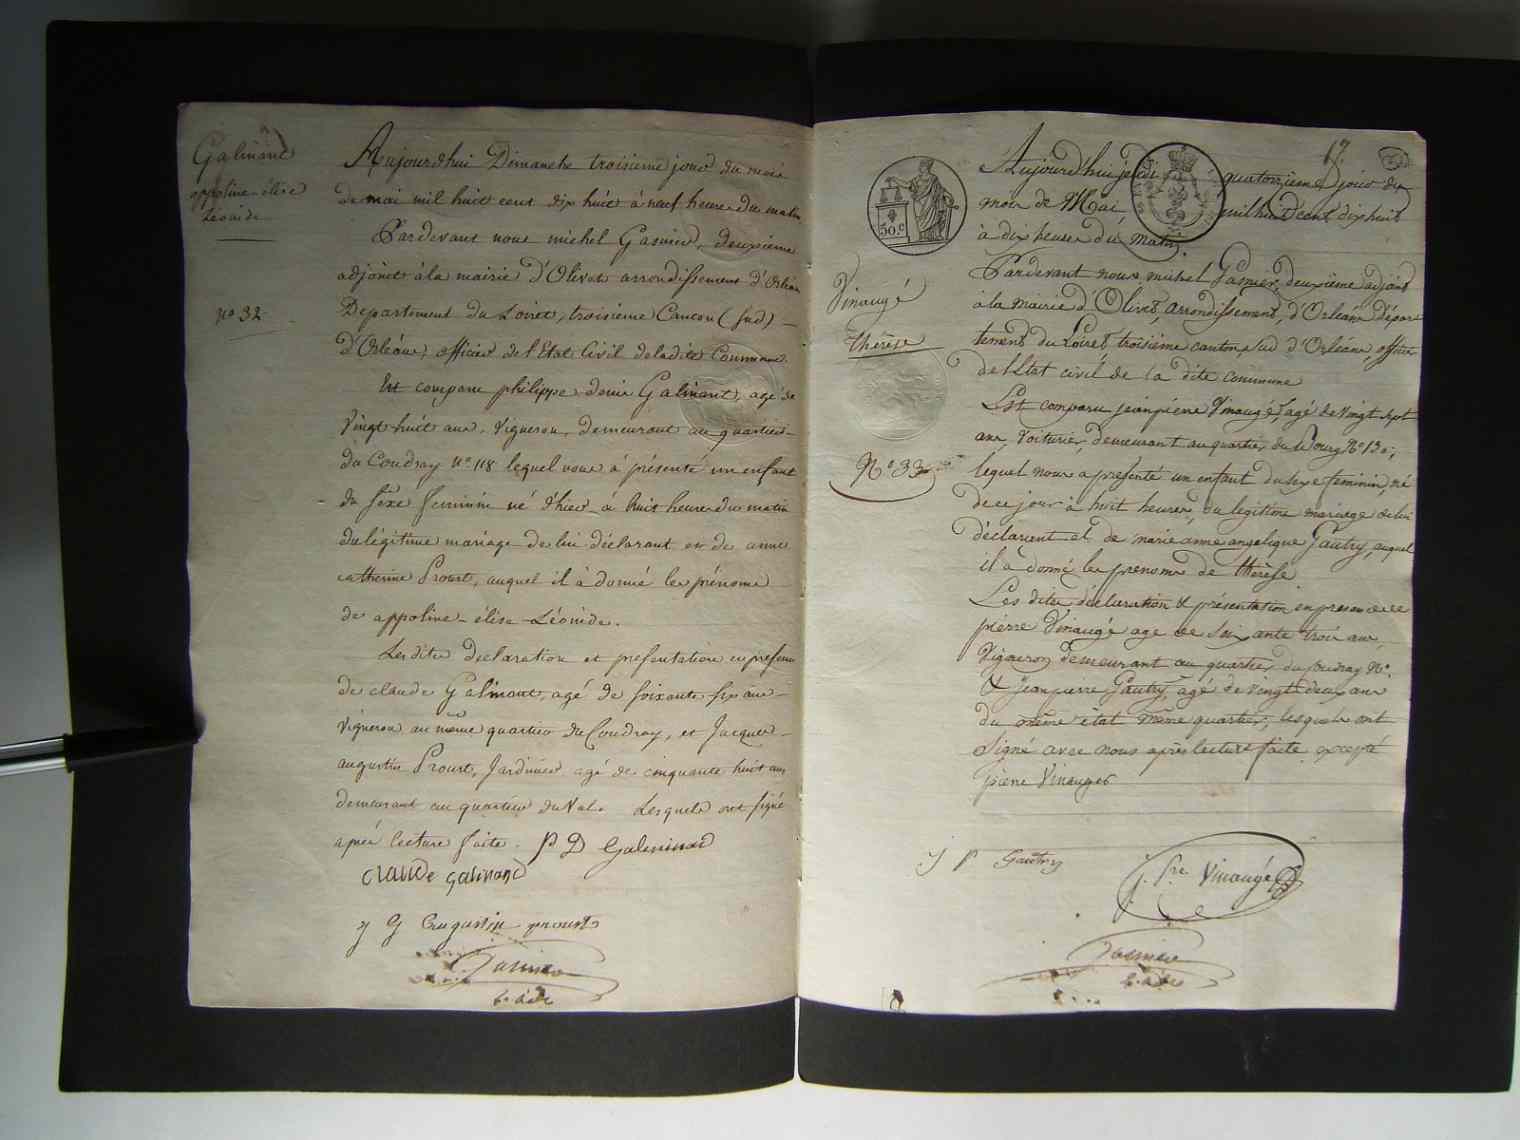 Galinant
appoline-élise
Léonide
n° 32
Aujourd'hui Dimanche troisieme jour du mois
de mai mil huit cent dix huit à neuf heure du matin
Pardevant nous michel Gasnier, deuxieme
adjoint à la mairie d'Olivet arrondissement d'Orléans
Departement du Loiret, troisieme Canton (sud)
d'Orléans, officier de l'Etat Civil deladite Commune.
Est comparu philippe denis Galinant, agé de
Vingt huit ans, Vigneron, demeurant au quartier
du Coudray n° 118 lequel nous à présenté un enfant
du séxe feminin né d'hier à huit heure du matin
du légitime mariage de lui déclarant et de anne
catherine Proust, auquel il à donné les prénoms
de appoline-élise-Léonide.
Les dites declaration et presentation en presence
de claude Galinant, agé de soixante six ans
vigneron au même quartier du Coudray, et Jacques
augustin Proust, Jardinier agé de cinquante huit ans
demeurant au quartier du Val. Lesquels ont signé
après lecture faite. P D Galinand
claude galinand
j G augustin proust
Gasnier
17.
50.c
Aujourd'hui jeudi quatorzieme jour du
mois de Mai mil huit cent dix huit
à dix heures du matin.
Vinaugé
thérèse
N° 33
Pardevant nous michel Gasnier, deuxième adjoint
à la mairie d'Olivet, arrondissement, d'Orléans dépar
tement du Loiret troisième canton sud d'Orléans, officier
de l'Etat civil de la dite commune
Est comparu jean pierre Vinaugé, agé de vingt sept
ans, Voiturier, demeurant au quartier du Bourg N° 130,
lequel nous a présenté un enfant du sexe feminin, né
de ce jour à huit heures, du légitime mariage de lui
déclarent et de marie anne angelique Gautry, auquel
il a donné les prenoms de thérèse
Les dites déclaration & présentation en presence de
pierre Vinaugé age de soixante trois ans,
Vigneron demeurant au quartier du Coudray N°
& Jean pierre Gautry, agé de vingt deux ans
du même état même quartier, lesquels ont
signé avec nous après lecture faite excepté
pierre Vinauger
J P Gautry
j. Pre Vinaugé
Gasnier